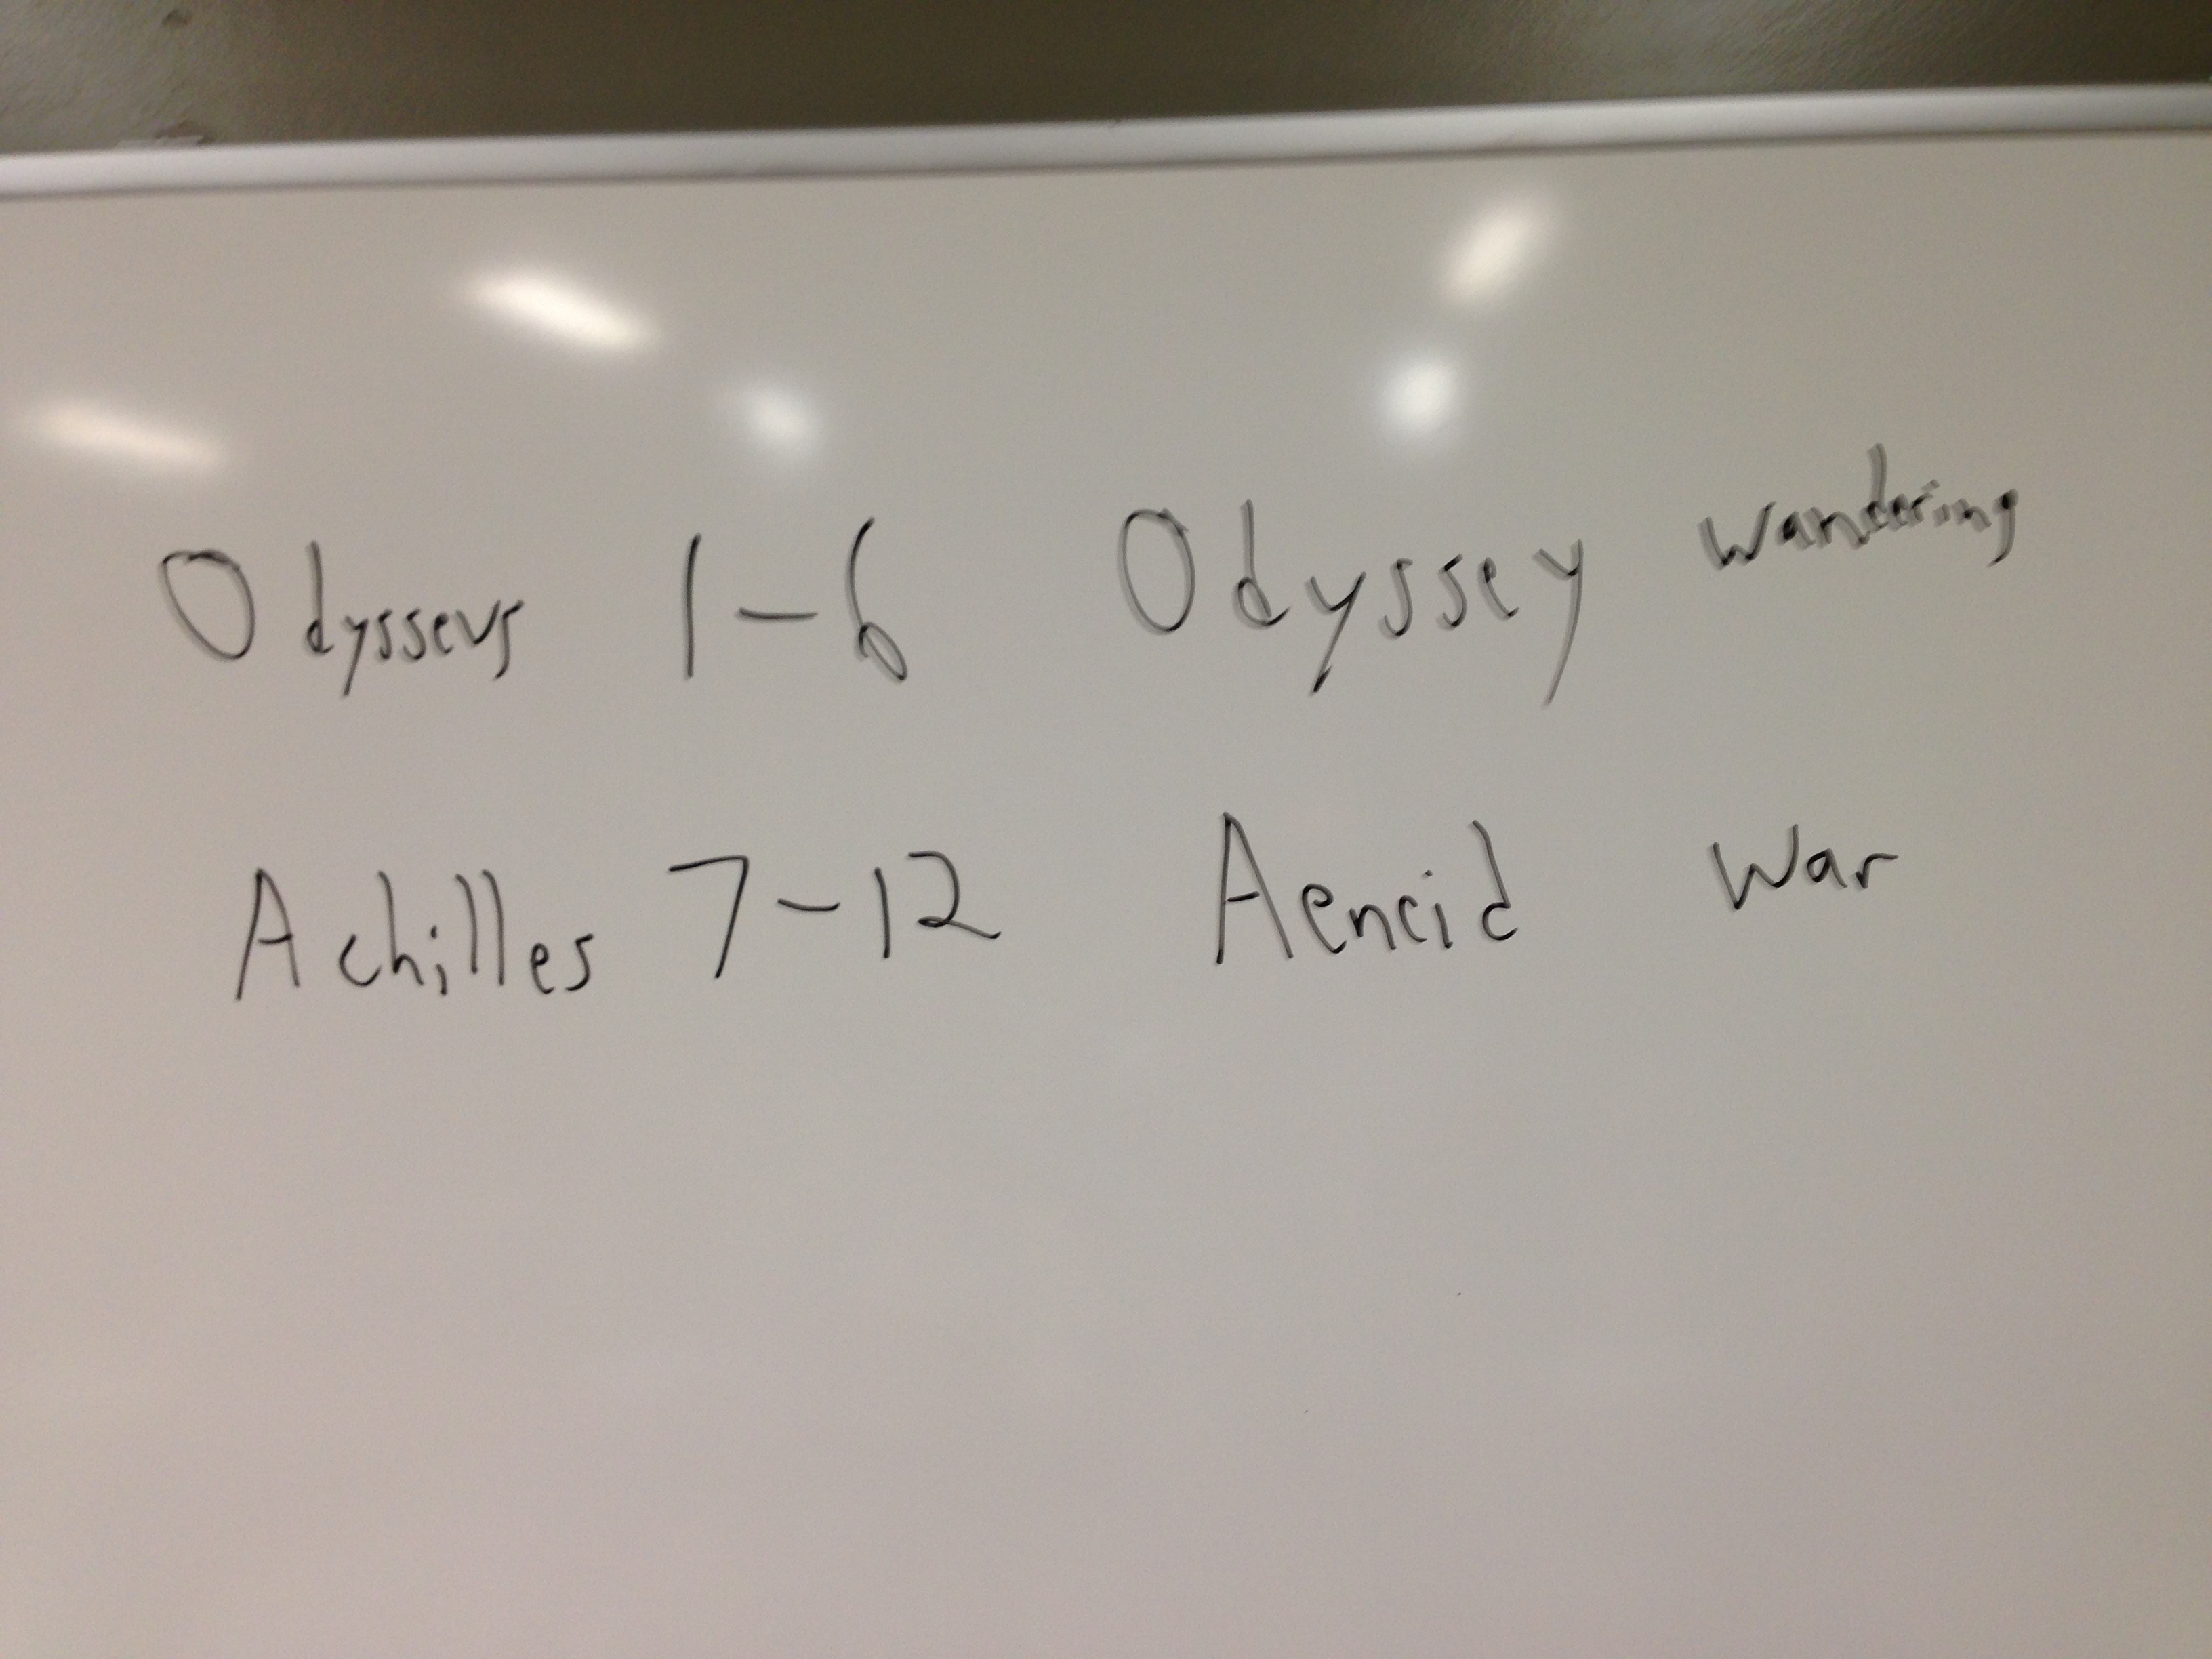 Odysseus 1-6 Odyssey wandering
Achilles 7-12 Aeneid War